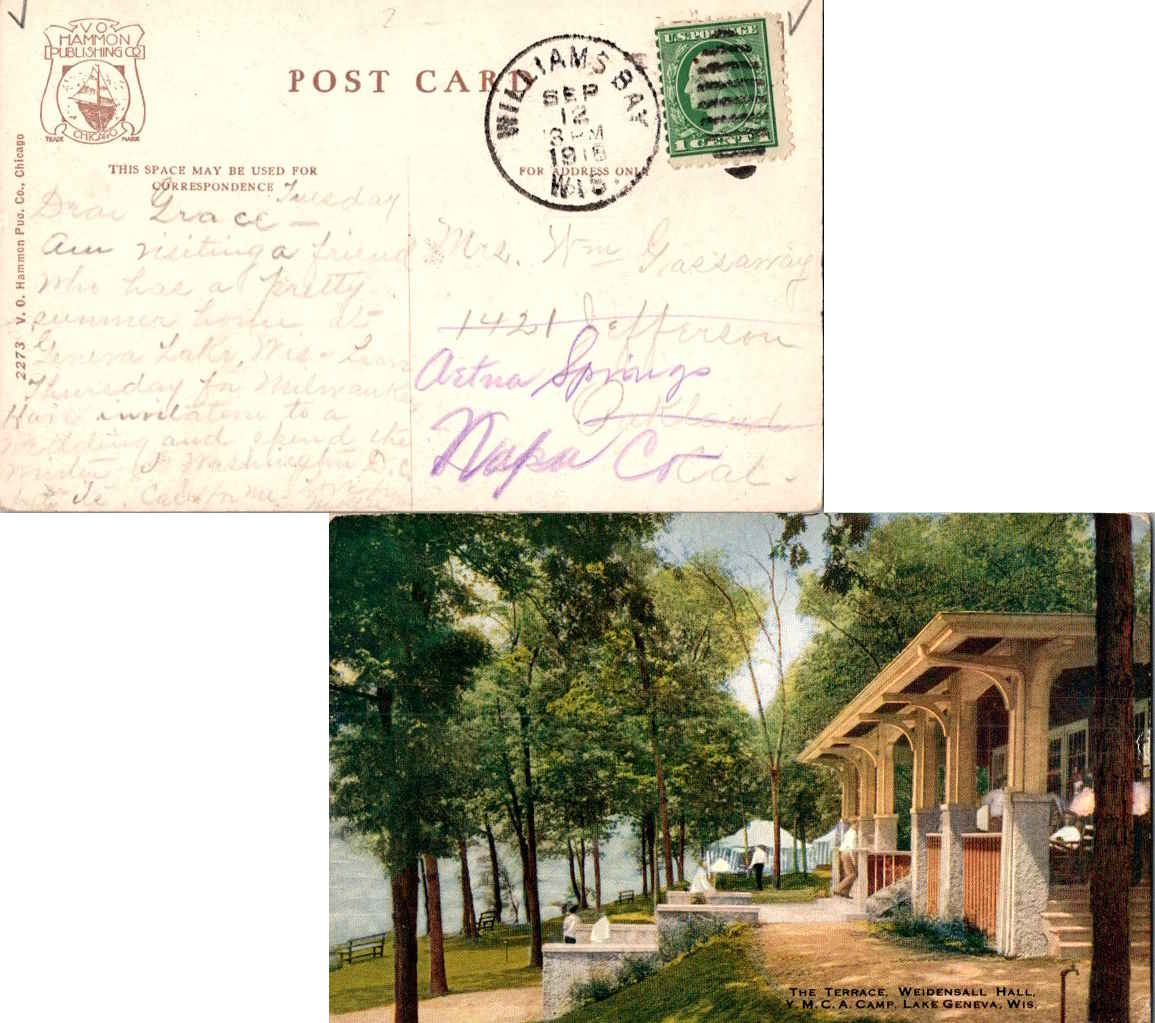 V O
HAMMON
PUBLISHING CO
CHICAGO
TRADE MARK
POST CARD
WILLIAMS BAY
SEP
12
3 PM
WIS.
U.S. POSTAGE
1 CENT 1
2273 V. O. Hammon Pub. Co., Chicago
THIS SPACE MAY BE USED FOR
CORRESPONDENCE
FOR ADDRESS ONLY
Tuesday
Dear Grace —
Am visiting a friend
who has a pretty
summer home at
Geneva Lake, Wis -
Thursday for Milwaukee
Have invitation to a
wedding and spend the
winter Washington D.C
Mrs. Wm Gassaway
1421 Jefferson
Oakland
Cal.
Aetna Springs
Napa Co
THE TERRACE, WEIDENSALL HALL,
Y. M. C. A. CAMP, LAKE GENEVA, WIS.